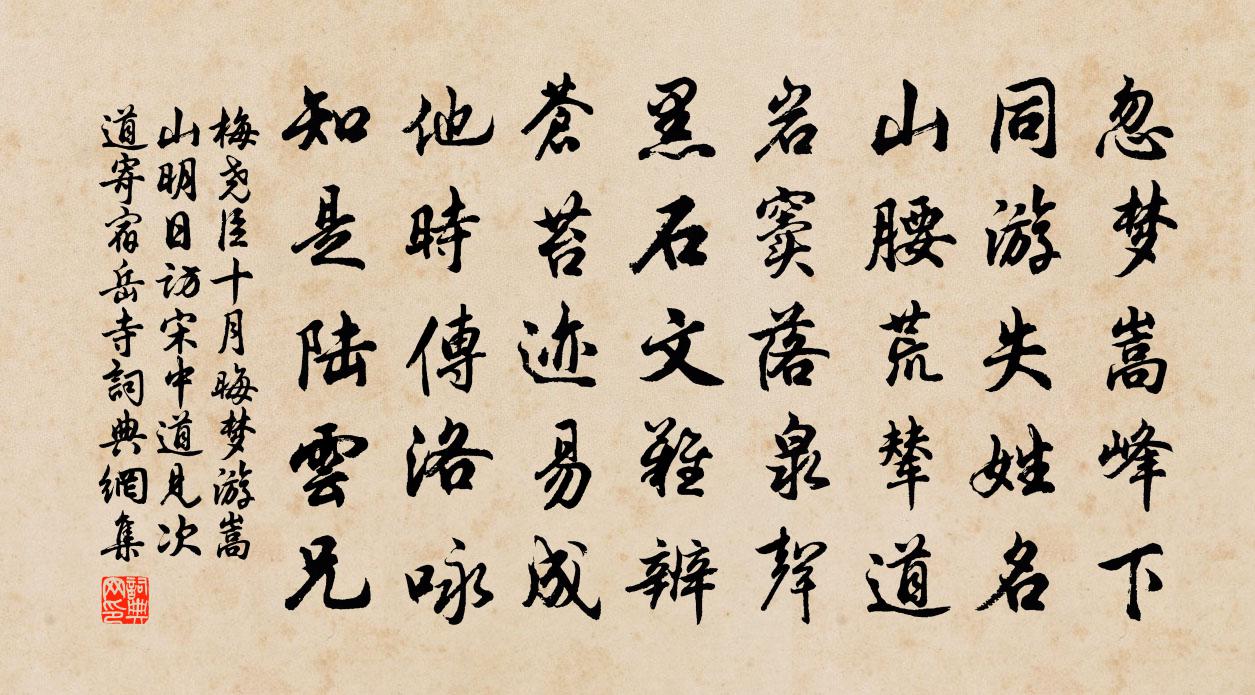 忽梦嵩峰下
同游失姓名
山腰荒辇道
岩窦落泉声
黑石文难辨
苍苔迹易成
他時傳洛咏
知是陆雲兄
梅尧臣十月晦梦游嵩
山明日访宋中道見次
道寄宿岳寺詞典網集
詞典网印